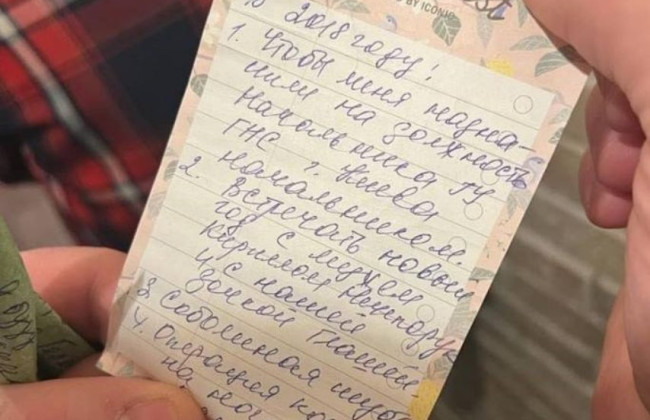 BY ICONIC
2018 году:
1. Чтобы меня назна-
чили на должность
начальника ГУ
ГНС г. Киева
начальником
2. Встречать новый
год с мужем
Кириллом
и с нашей
дочкой Дашей.
3. Соболиная шуба
4. Операция
на но